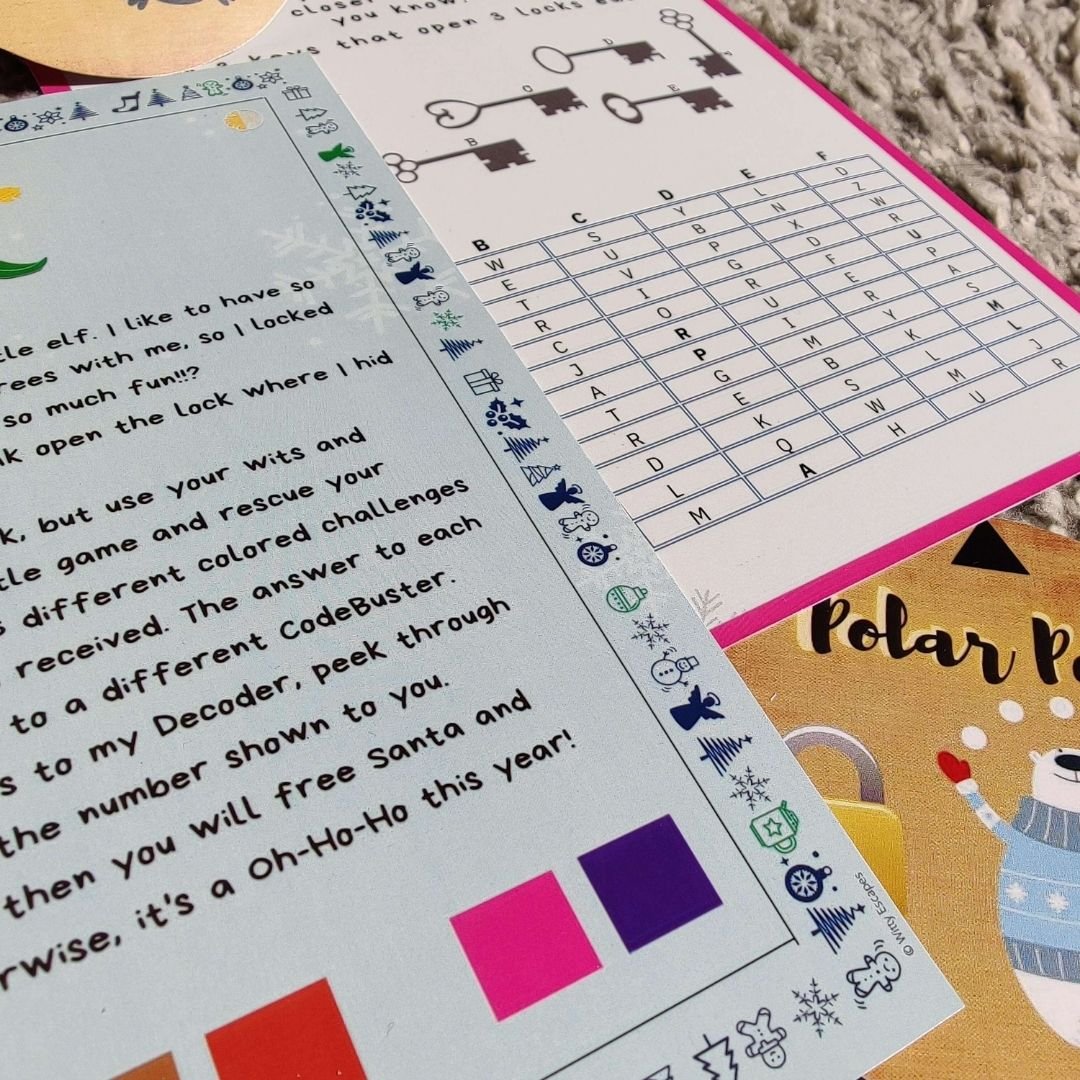 you know?
that open 3 locks
D
O
E
B
B C D E F
W S Y L D
E U B N Z
T V P X W
R I G D R
C O R F U
J R U E P
A P I R A
T G M Y S
R E B K M
D K S L L
L Q W M J
M A H U R
elf. I like to have so
with me, so I locked
so much fun!!?
open the lock where I hid
but use your wits and
game and rescue your
different colored challenges
received. The answer to each
to a different CodeBuster.
to my Decoder, peek through
the number shown to you.
then you will free Santa and
it's a Oh-Ho-Ho this year!
© Witty Escapes
Polar